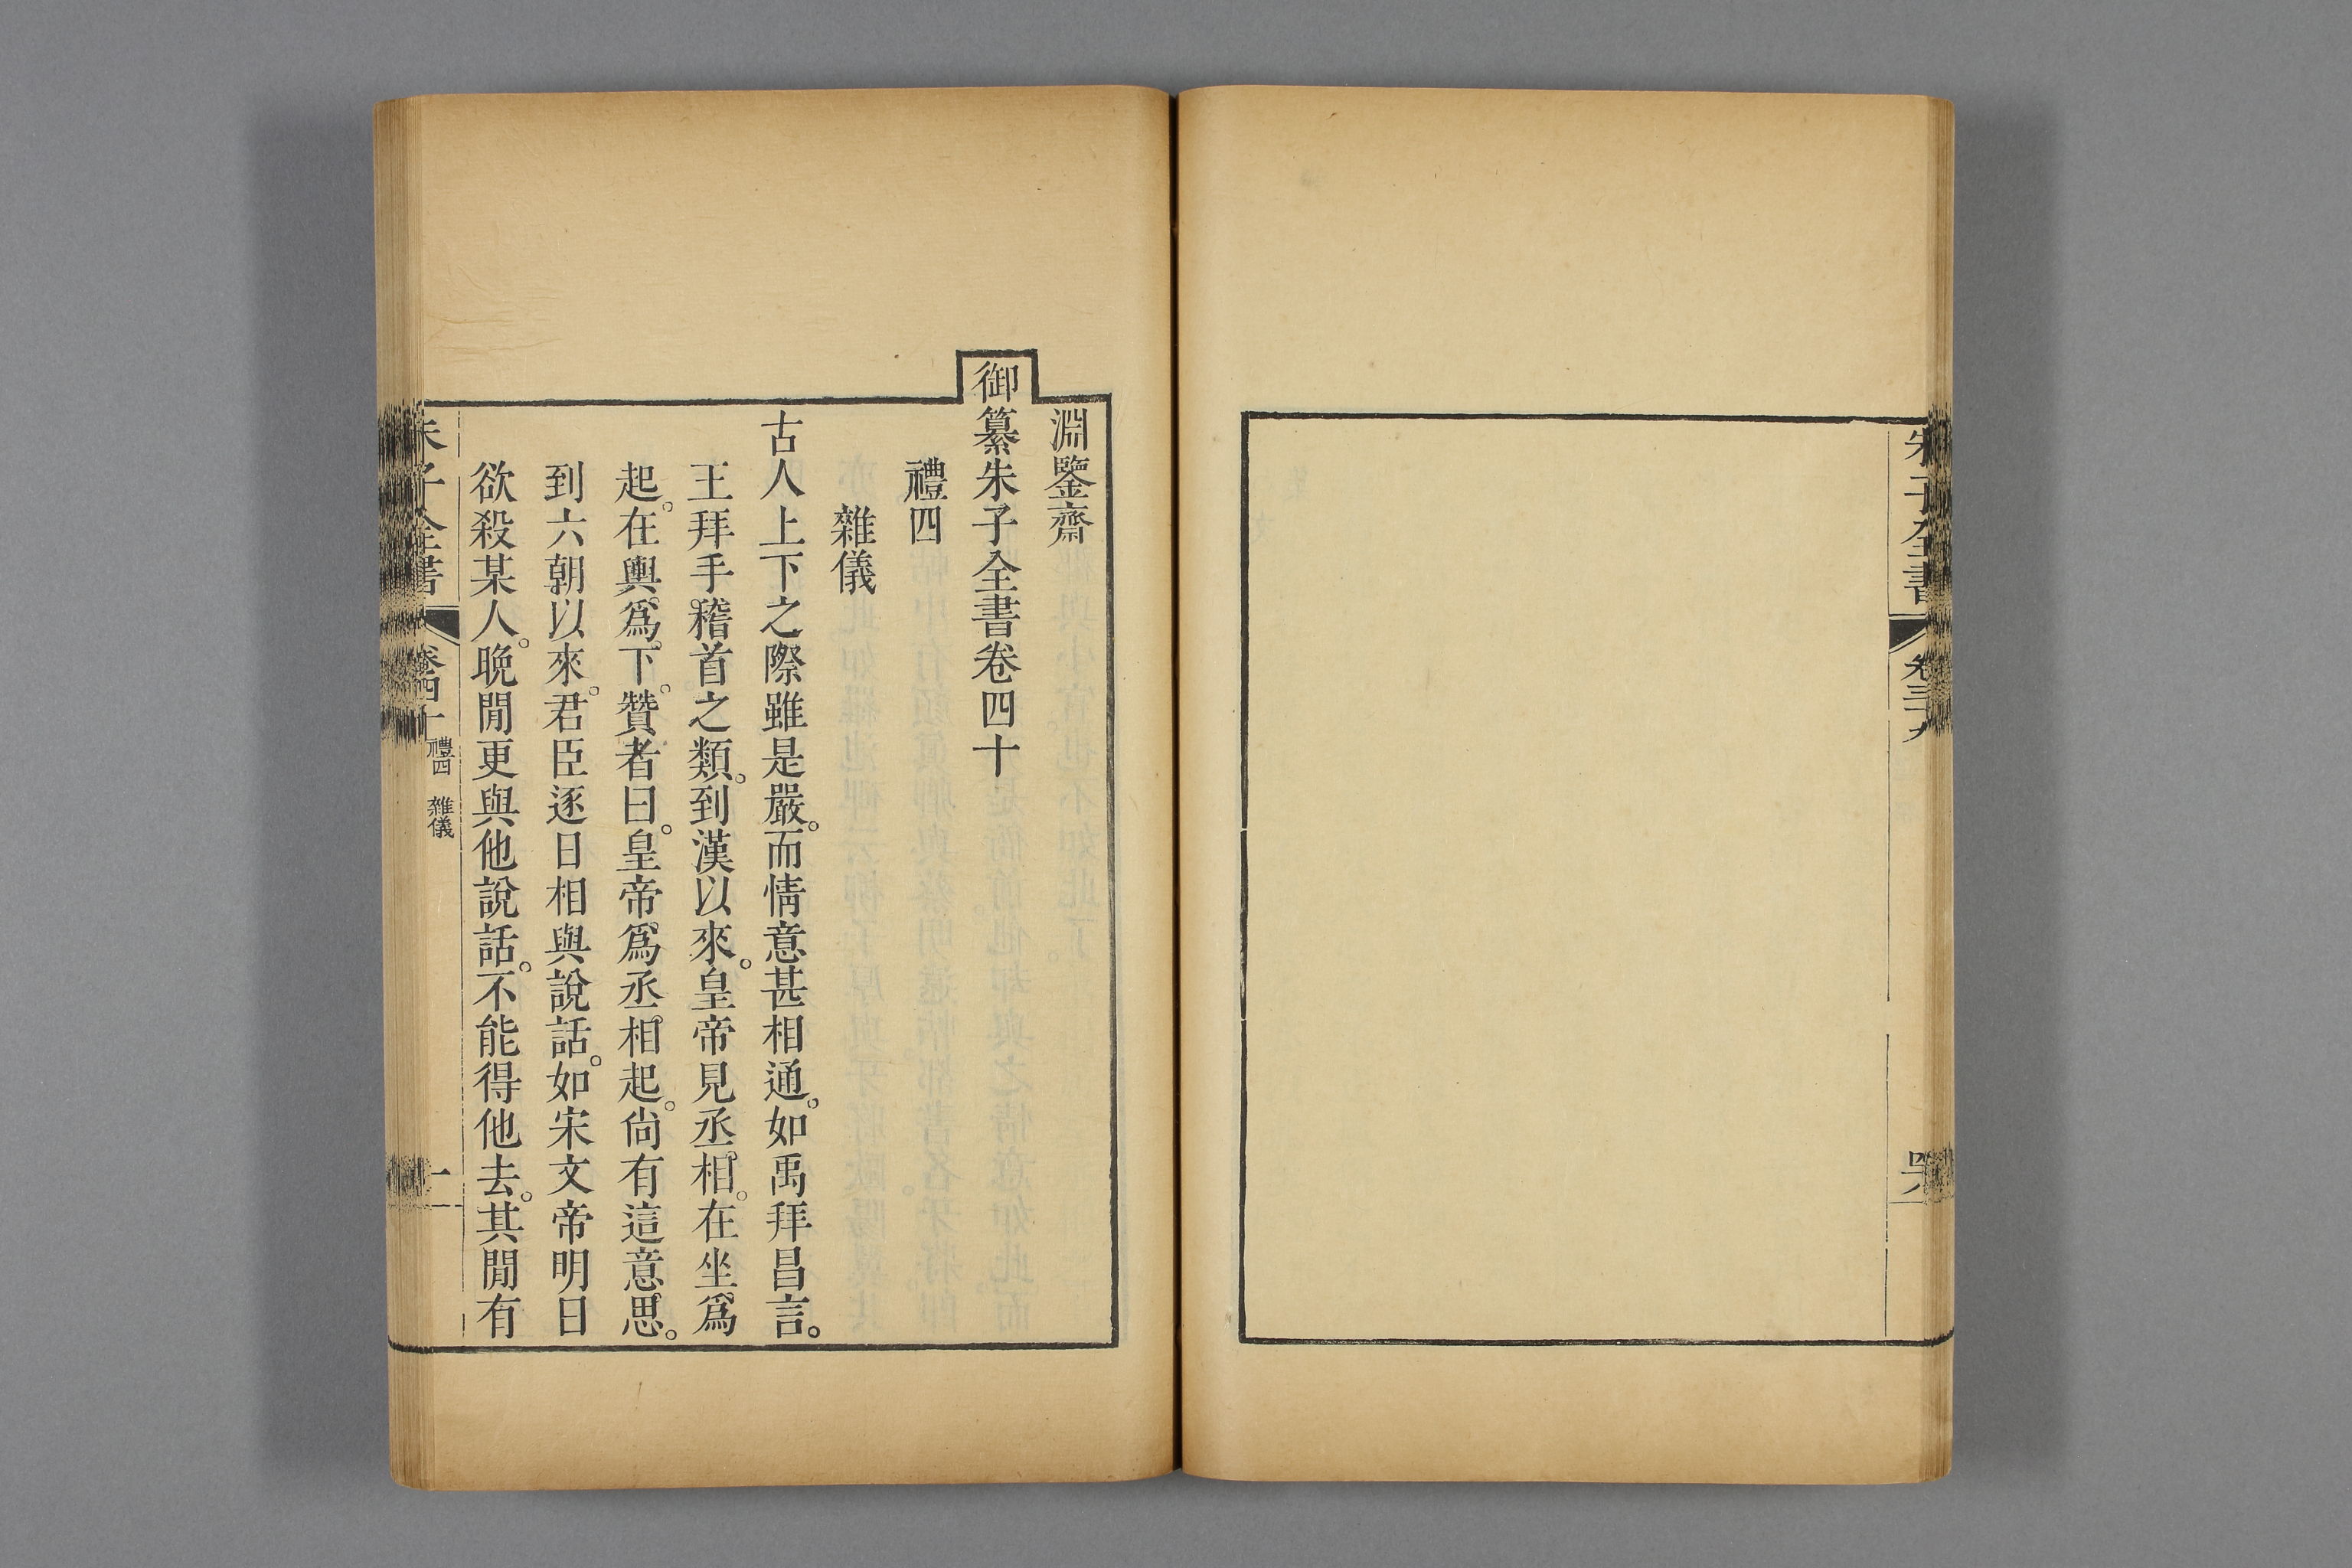 朱子全書 卷三十九
淵鑒齋
御纂朱子全書卷四十
禮四
雜儀
古人上下之際雖是嚴。而情意甚相通。如禹拜昌言。
王拜手稽首之類。到漢以來。皇帝見丞相。在坐爲
起。在輿爲下。贊者曰。皇帝爲丞相起。尙有這意思。
到六朝以來。君臣逐日相與說話。如宋文帝明日
欲殺某人。晚閒更與他說話。不能得他去。其閒有
朱子全書 卷四十 禮四 雜儀 一